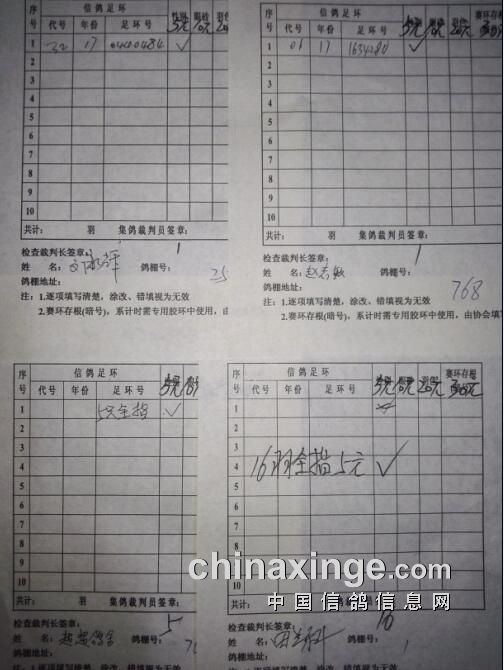 信鸽足环
序号 代号 年份 足环号
1 32 17 0400484 ✓
2
3
4
5
6
7
8
9
10
共计： 羽 集鸽裁判员签章：
检查裁判长签章： 1
姓 名： 鸽棚号： 25
鸽棚地址：
注：1.逐项填写清楚，涂改、错填视为无效
2.赛环存根(暗号)，累计时需专用胶环中使用，由
信鸽足环 赛环存根
序号 代号 年份 足环号
1 01 17 ✓
2
3
4
5
6
7
8
9
10
共计： 羽 集鸽裁判员签章：
检查裁判长签章： 1
姓 名： 赵志敏 鸽棚号：
鸽棚地址： 768
注：1.逐项填写清楚，涂改、错填视为无效
2.赛环存根(暗号)，累计时需专用胶环中使用，由协会填写
信鸽足环
序号 代号 年份 足环号 5元
1 5只全指 ✓
2
3
4
5
6
7
8
9
10
共计： 羽 集鸽裁判员签章：
检查裁判长签章： 5
姓 名： 鸽棚号：
鸽棚地址：
注：1.逐项填写清楚，涂改、错填视为无效
信鸽足环 赛环存根
序号 代号 年份 足环号 5元 10元 20元 30元
1
2
3
4 16羽全指5元 ✓
5
6
7
8
9
10
共计： 羽 集鸽裁判员签章：
检查裁判长签章： 16
姓 名： 鸽棚号： 1
鸽棚地址：
注：1.逐项填写清楚，涂改、错填视为无效
chinaxinge.com
中国信鸽信息网